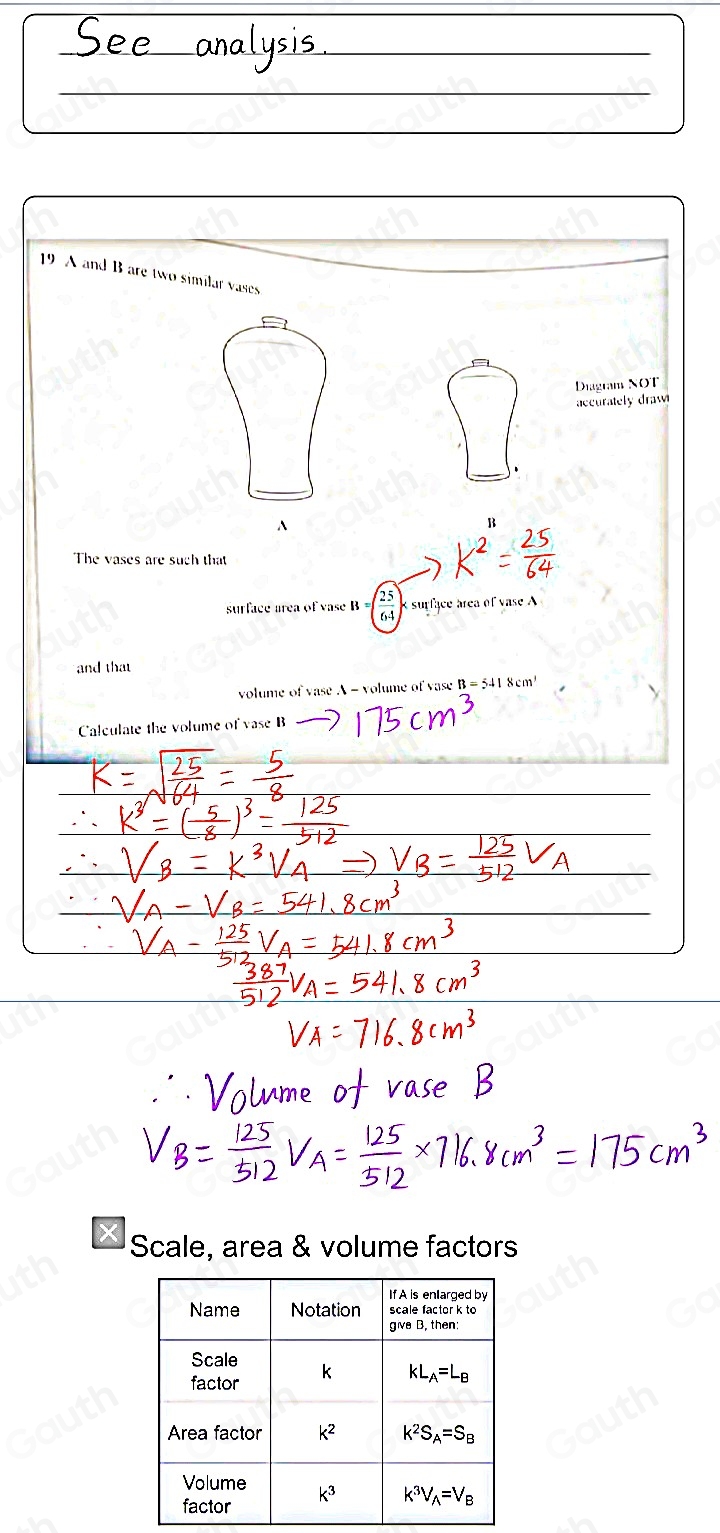 See analysis.
19 A and B are two similar vases
Diagram NOT
accurately drawn
A
B
The vases are such that
→ K² = 25/64
surface area of vase B = 25/64 × surface area of vase A
and that
volume of vase A − volume of vase B = 541 8cm³
Calculate the volume of vase B → 175cm³
K = √25/64 = 5/8
∴ K³ = (5/8)³ = 125/512
∴ V_B = K³V_A ⇒ V_B = 125/512 V_A
∵ V_A − V_B = 541.8cm³
∴ V_A − 125/512 V_A = 541.8 cm³
387/512 V_A = 541.8 cm³
V_A = 716.8cm³
∴ Volume of vase B
V_B = 125/512 V_A = 125/512 × 716.8cm³ = 175cm³
Scale, area & volume factors
Name Notation If A is enlarged by scale factor k to give B, then:
Scale factor k kL_A=L_B
Area factor k² k²S_A=S_B
Volume factor k³ k³V_A=V_B
Gauth